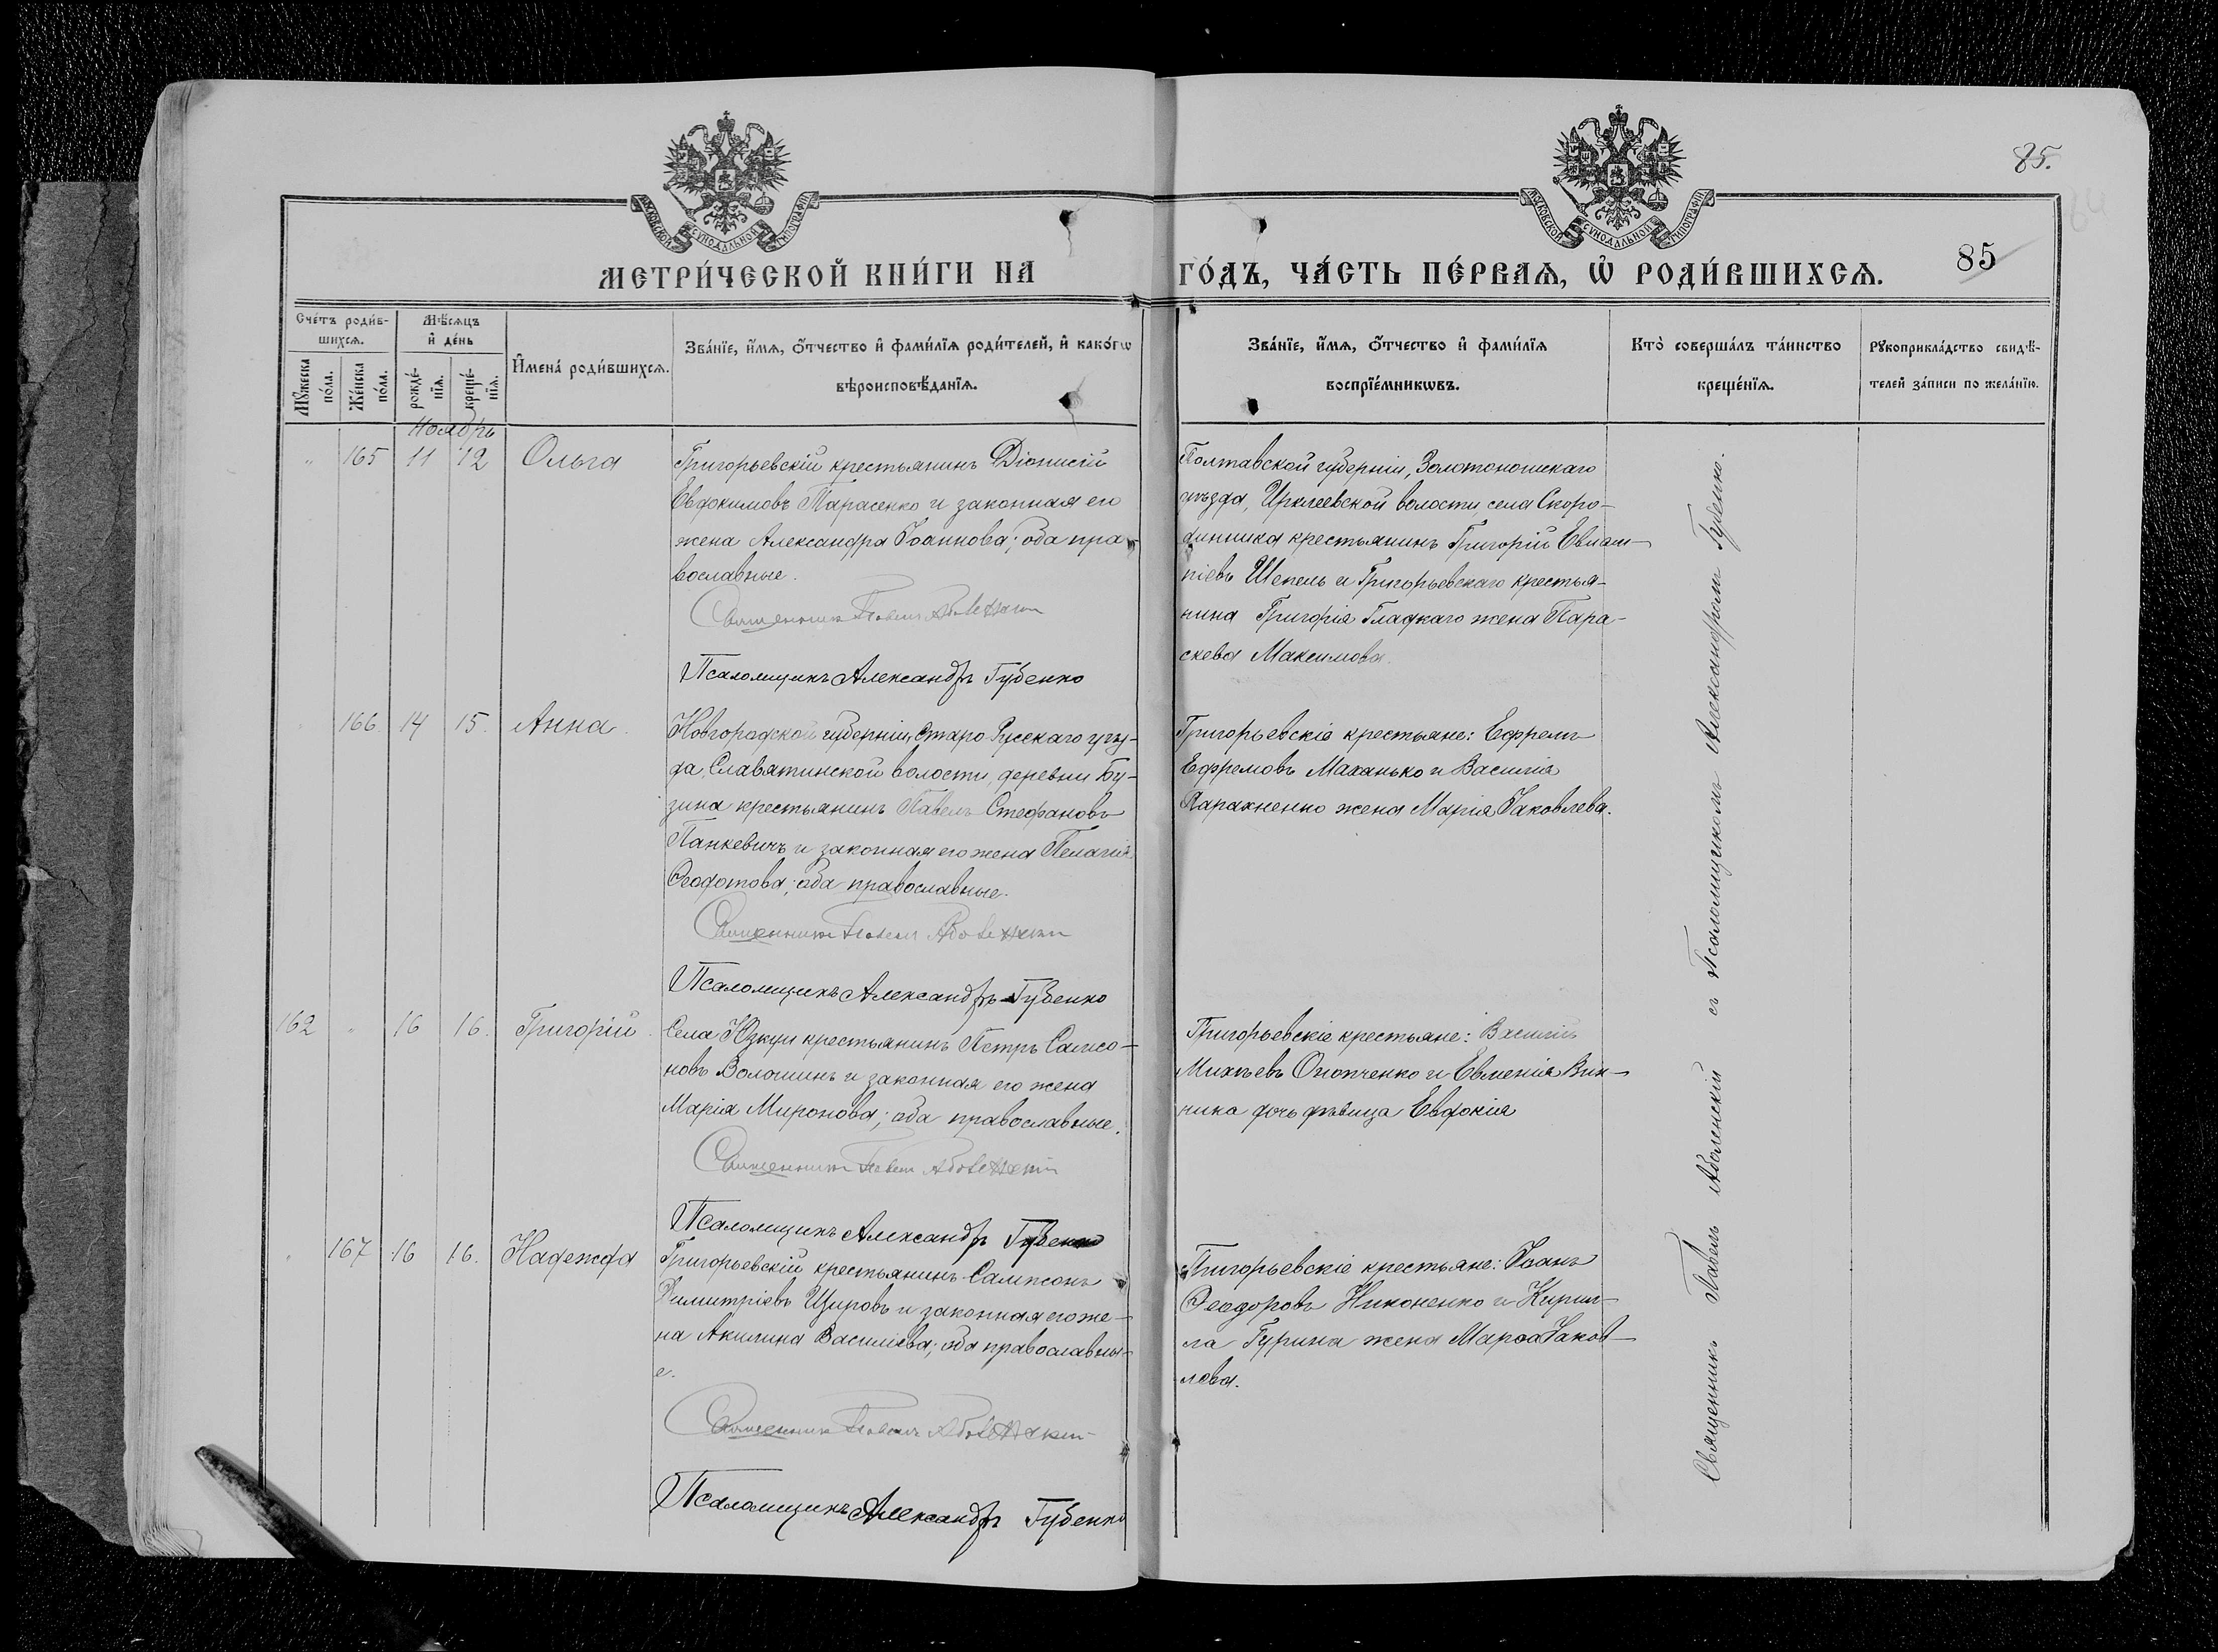 МОСКОВСКОЙ СѴНОДАЛЬНОЙ ТИПОГРАФІИ
МОСКОВСКОЙ СѴНОДАЛЬНОЙ ТИПОГРАФІИ
85.
85
МЕТРИ́ЧЕСКОЙ КНИ́ГИ НА ГО́ДЪ, ЧА́СТЬ ПЕ́РВАѦ, Ѡ҆ РОДИ́ВШИХСѦ.
Сче́тъ роди́в-
шихсѧ.
Мѣ́сѧцъ
и҆ де́нь
Мꙋ́жеска
по́ла.
Же́нска
по́ла.
рожде́-
нїѧ.
креще́-
нїѧ.
И҆мена̀ роди́вшихсѧ.
Зва́нїе, и҆́мѧ, ѻ҆́тчество и҆ фами́лїѧ роди́телей, и҆ како́гѡ
вѣроисповѣ́данїѧ.
Зва́нїе, и҆́мѧ, ѻ҆́тчество и҆ фами́лїѧ
воспрїе́мникѡвъ.
Кто̀ соверша́лъ та́инство
креще́нїѧ.
Рꙋкоприкла́дство свидѣ́-
телей за́писи по жела́нїю.
Ноябрь
" 165 11 12 Ольга
Григорьевскій крестьянинъ Діонисій
Евдокимовъ Тарасенко и законная его
жена Александра Іоаннова; оба пра-
вославные.
Священникъ Павелъ
Псаломщикъ Александръ Губенко
Полтавской губерніи, Золотоношскаго
уѣзда, Ирклеевской волости, села Скоро-
динника крестьянинъ Григорій Евлам-
піевъ Шепель и Григорьевскаго крестья-
нина Григорія Гладкаго жена Пара-
скева Максимова.
166 14 15. Анна.
Новгородской губерніи, Старо-Русскаго уѣз-
да, Славятинской волости, деревни Бу-
зина крестьянинъ Павелъ Стефановъ
Панкевичъ и законная его жена Пелагія
Ѳеодотова; оба православные.
Священникъ Павелъ
Псаломщикъ Александръ Губенко
Григорьевскіе крестьяне: Ефремъ
Ефремовъ Маханько и Василія
Карахненко жена Марія Іаковлева.
162 " 16 16. Григорій.
Села Юзкуи крестьянинъ Петръ Сампсо-
новъ Волошинъ и законная его жена
Марія Миронова; оба православные.
Священникъ Павелъ
Псаломщикъ Александръ Губенко
Григорьевскіе крестьяне: Василій
Михѣевъ Онопченко и Евменія Вин-
ника дочь дѣвица Евдокія
" 167 16 16. Надежда
Григорьевскій крестьянинъ Сампсонъ
Димитріевъ Щировъ и законная его же-
на Акилина Василіева; оба православны-
е.
Священникъ Павелъ
Псаломщикъ Александръ Губенко
Григорьевскіе крестьяне: Іоанъ
Ѳеодоровъ Никоненко и Кирил-
ла Гурина жена Марѳа Іаков-
лева.
Священникъ Павелъ съ Псаломщикомъ Александромъ Губенко.